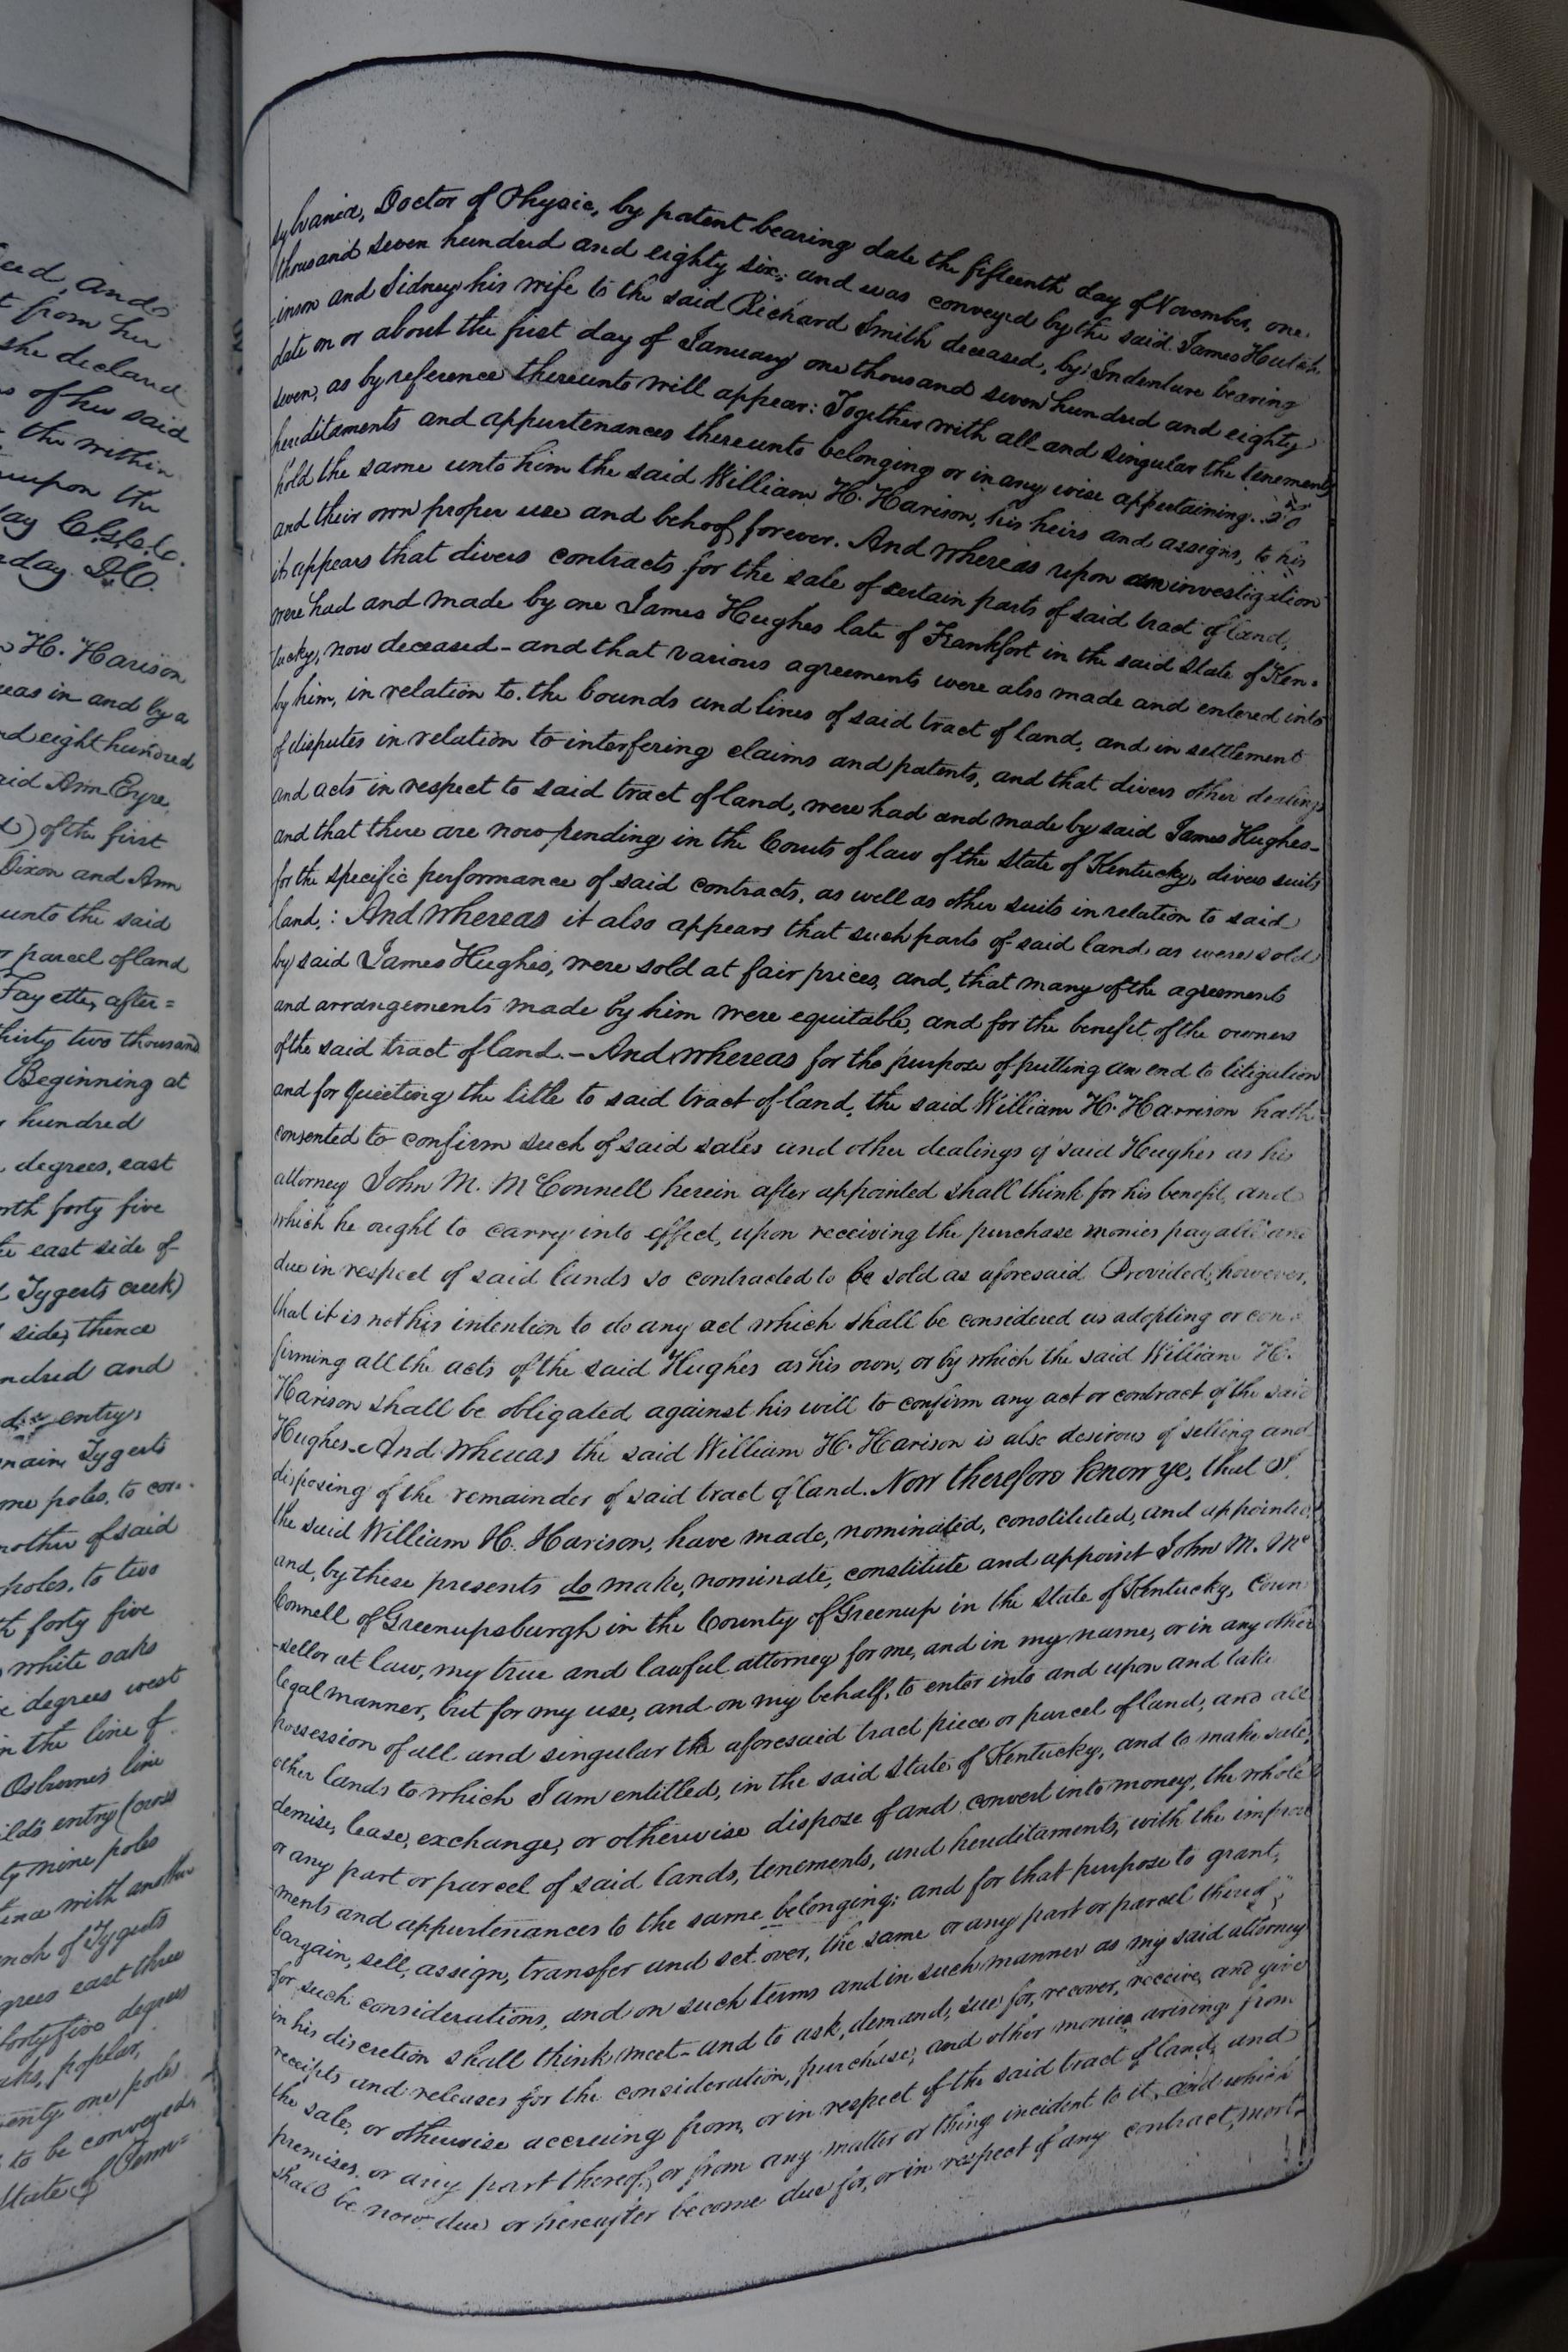 eed, and
t from her
she declared
s of her said
the within
upon the
day C.G.C.C.
day D.C.
H. Harison
eas in and by a
nd eight hundred
aid Ann Eyre,
) of the first
Dixon and Ann
unto the said
r parcel of land
Fayette, after=
thirty two thousand
Beginning at
hundred
degrees, east
rth forty five
e east side of
Tygerts creek)
side, thence
ndred and
entry,
main Tygerts
me poles, to cor-
nother of said
poles, to two
h forty five
white oaks
degrees west
n the line of
Osburnes line
ild's entry (cross
ty nine poles
ence with another
nch of Tygerts
grees east three
forty five degrees
aks, poplar,
enty one poles
to be conveyed,
State of Penn=
sylvania, Doctor of Physic, by patent bearing date the fifteenth day of November, one
thousand seven hundred and eighty six; and was conveyed by the said James Hutch
-inson and Sidney his wife to the said Richard Smith deceased, by Indenture bearing
date on or about the first day of January one thousand seven hundred and eighty
seven, as by reference thereunto will appear: Together with all and singular the tenements
hereditaments and appurtenances thereunto belonging or in any wise appertaining. To
hold the same unto him the said William H. Harison, his heirs and assigns, to his
and their own proper use and behoof forever. And whereas upon an investigation
it appears that divers contracts for the sale of certain parts of said tract of land,
were had and made by one James Hughes late of Frankfort in the said State of Ken-
tucky, now deceased - and that various agreements were also made and entered into
by him, in relation to the bounds and lines of said tract of land, and in settlement
of disputes in relation to interfering claims and patents, and that divers other dealings
and acts in respect to said tract of land, were had and made by said James Hughes-
and that there are now pending in the Courts of law of the State of Kentucky, divers suits
for the specific performance of said contracts, as well as other suits in relation to said
land,: And whereas it also appears that such parts of said land as were sold
by said James Hughes, were sold at fair prices, and, that many of the agreements
and arrangements made by him were equitable, and for the benefit of the owners
of the said tract of land. - And whereas for the purpose of putting an end to litigation
and for Quieting the title to said tract of land, the said William H. Harrison hath
consented to confirm such of said sales and other dealings of said Hughes as his
attorney John M. McConnell herein after appointed shall think for his benefit, and
which he ought to carry into effect, upon receiving the purchase monies payable and
due in respect of said lands so contracted to be sold as aforesaid Provided, however,
that it is not his intention to do any act which shall be considered as adopting or con-
firming all the acts of the said Hughes as his own, or by which the said William H.
Harison shall be obligated against his will to confirm any act or contract of the said
Hughes. And whereas the said William H. Harison is also desirous of selling and
disposing of the remainder of said tract of land. Now therefore know ye, that I,
the said William H. Harison, have made, nominated, constituted, and appointed,
and, by these presents do make, nominate, constitute and appoint John M. Mc
Connell of Greenupsburgh in the County of Greenup in the State of Kentucky, Coun
-sellor at law, my true and lawful attorney for me, and in my name, or in any other
legal manner, but for my use, and on my behalf, to enter into and upon and take
possession of all and singular the aforesaid tract piece or parcel of land, and all
other lands to which I am entitled, in the said State of Kentucky, and to make sale,
demise, lease, exchange, or otherwise dispose of and convert into money, the whole
or any part or parcel of said lands, tenements, and hereditaments, with the improve
ments and appurtenances to the same belonging; and for that purpose to grant,
bargain, sell, assign, transfer and set over, the same or any part or parcel thereof,
for such considerations, and on such terms and in such manner as my said attorney
in his discretion shall think meet - and to ask, demand, sue for, recover, receive, and give
receipts and releases for the consideration, purchase, and other monies arising from
the sale, or otherwise accruing from, or in respect of the said tract of land, and
premises, or any part thereof, or from any matter or thing incident to it, and which
shall be now due or hereafter become due for, or in respect of any contract, mort-